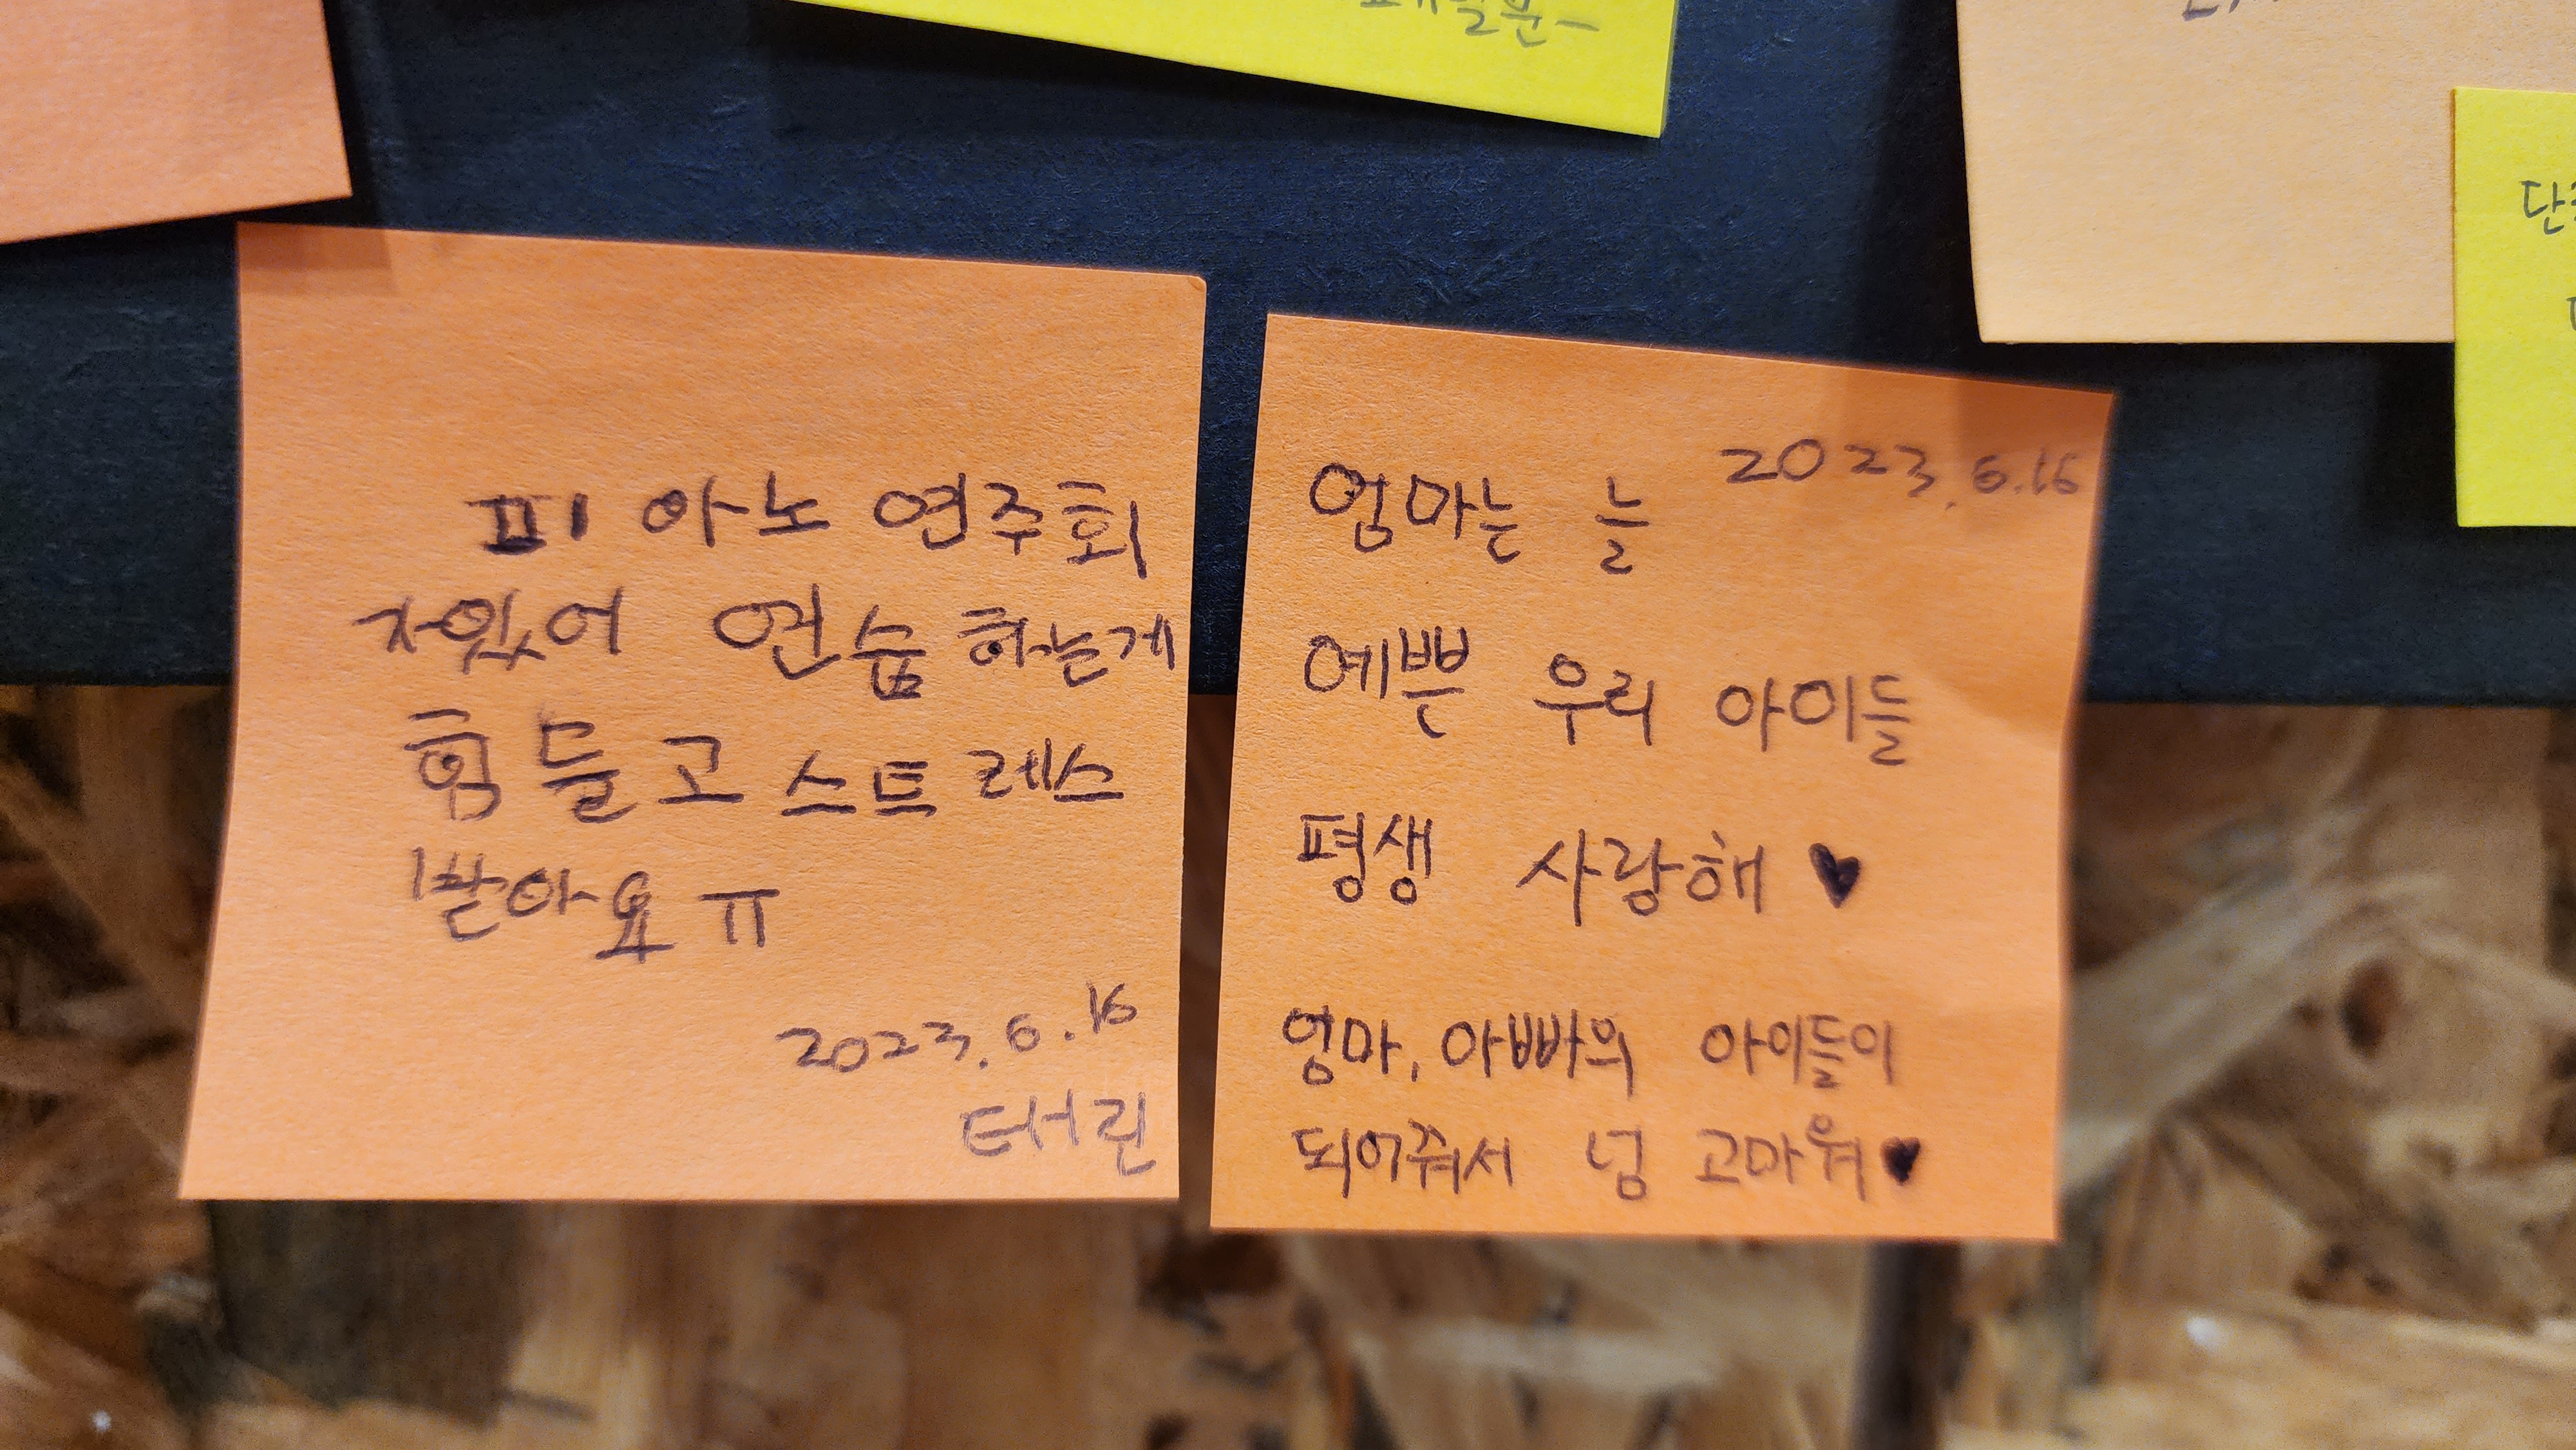 피아노 연주회
자있어 연습하는게
힘들고 스트레스
받아요 ㅠ
2023.6.16
태린
2023.6.16
엄마는 늘
예쁜 우리 아이들
평생 사랑해 ♥
엄마, 아빠의 아이들이
되어줘서 넘 고마워 ♥